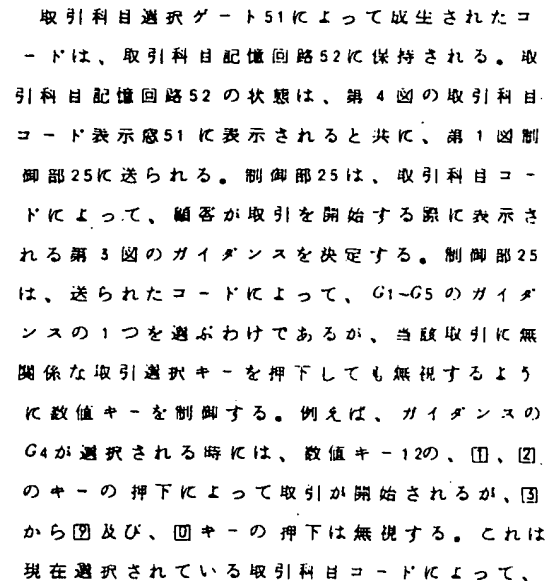 取引科目選択ゲート51によって成生されたコ
ードは、取引科目記憶回路52に保持される。取
引科目記憶回路52の状態は、第4図の取引科目
コード表示窓51に表示されると共に、第1図制
御部25に送られる。制御部25は、取引科目コー
ドによって、顧客が取引を開始する際に表示さ
れる第3図のガイダンスを決定する。制御部25
は、送られたコードによって、G1~G5のガイダ
ンスの1つを選ぶわけであるが、当該取引に無
関係な取引選択キーを押下しても無視するよう
に数値キーを制御する。例えば、ガイダンスの
G4が選択される時には、数値キー12の、1、2
のキーの押下によって取引が開始されるが、3
から9及び、0キーの押下は無視する。これは
現在選択されている取引科目コードによって、